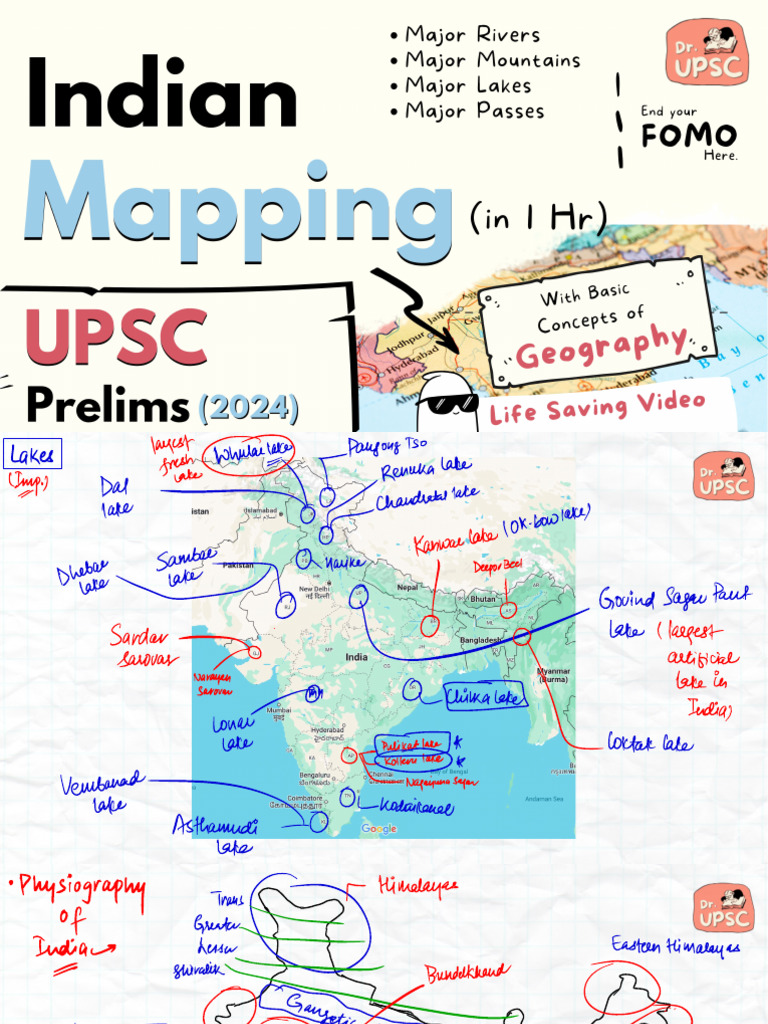 Indian
Mapping
(in 1 Hr)
• Major Rivers
• Major Mountains
• Major Lakes
• Major Passes
Dr.
UPSC
End your
FOMO
Here.
UPSC
Prelims (2024)
With Basic
Concepts of
"Geography"
Life Saving Video
Jaipur
Jodhpur
Hyderabad
Lakes
(Imp.)
largest
fresh
lake
Whular lake
Pangong Tso
Renuka lake
Chandratal lake
Dal
lake
Dr.
UPSC
Dhebar
lake
Sambar
lake
Kanwar lake (OX-bow lake)
Deepor Beel
Govind Sagar Pant
lake (largest
artificial
lake in
India)
Sardar
Sarovar
Narayan
Sarovar
Lonar
lake
Chilka lake
Loktak lake
Pulikat lake
Kolleru lake
Nagarjuna Sagar
Kodaikanal
Vembanad
lake
Asthamudi
lake
istan
Islamabad
Pakistan
New Delhi
नई दिल्ली
Nepal
Bhutan
Bangladesh
India
Myanmar
(Burma)
Mumbai
Hyderabad
Bengaluru
Chennai
Coimbatore
Bay of Bengal
Andaman Sea
Google
• Physiography
of
India
Himalayas
Trans
Greater
Lesser
Shivalik
Dr.
UPSC
Eastern Himalayas
Bundelkhand
Gangetic